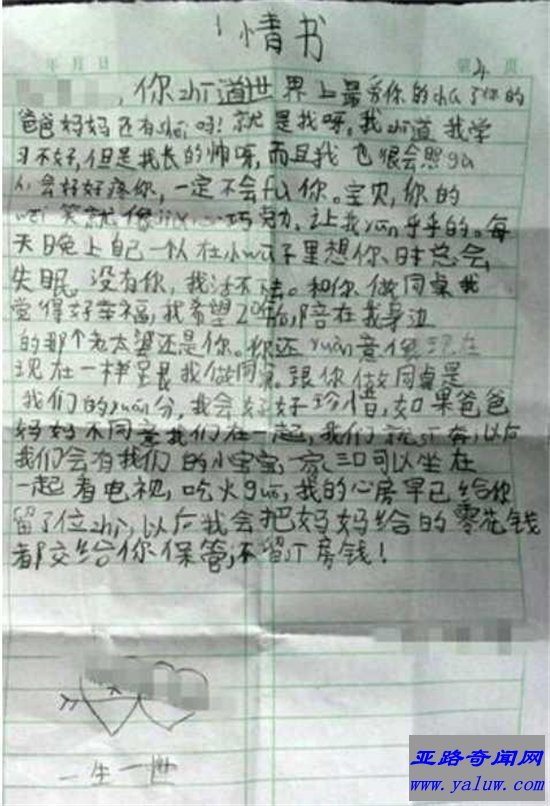 情书
年 月 日
第 4 页
,你zhi道世界上最爱你的chu了你的
爸爸妈妈还有shei吗!就是我呀,我zhi道我学
习不好,但是我长的帅呀,而且我也很会照gu
人会好好疼你,一定不会fu你。宝贝,你的
笑就像 巧克力,让我yun乎乎的。每
天晚上自己一个人在小wu子里想你、时总会,
失眠,没有你,我活不下去。和你做同桌我
觉得好幸福,我希望20年后,陪在我身边
的那个老太婆还是你。你还yuàn意像现在
现在一样 我做同桌,跟你做同桌是
我们的yuán分,我会好好珍惜,如果爸爸
妈妈不同意我们在一起,我们就 以后
我们会有我们的小宝宝,一家三口可以坐在
一起看电视,吃火guo,我的心房早已给你
留了位zhi,以后我会把妈妈给的零花钱
都交给你保管,不留 房钱!
一生一世
亚路奇闻网
www.yaluw.com